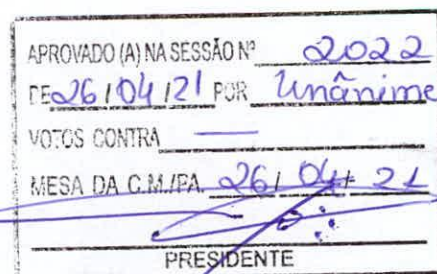 APROVADO (A) NA SESSÃO Nº 2022
DE 26/04/21 POR Unânime
VOTOS CONTRA —
MESA DA C.M./PA. 26/04/21
PRESIDENTE